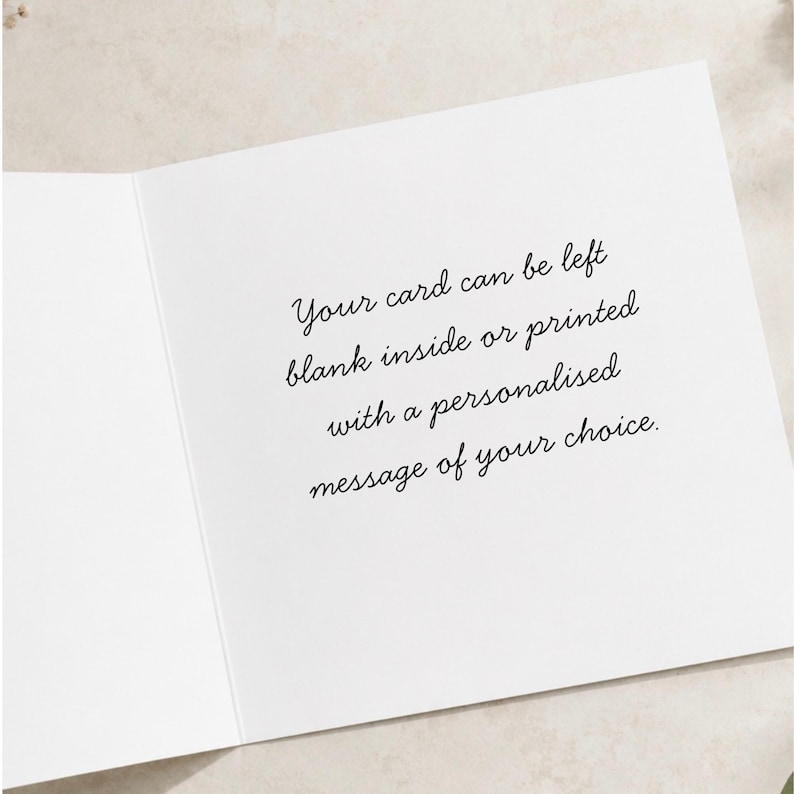 Your card can be left
blank inside or printed
with a personalised
message of your choice.